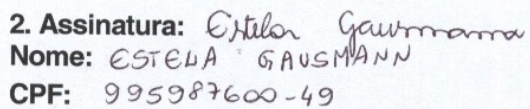 2. Assinatura: Estela Gausmann
Nome: ESTELA GAUSMANN
CPF: 995987600-49